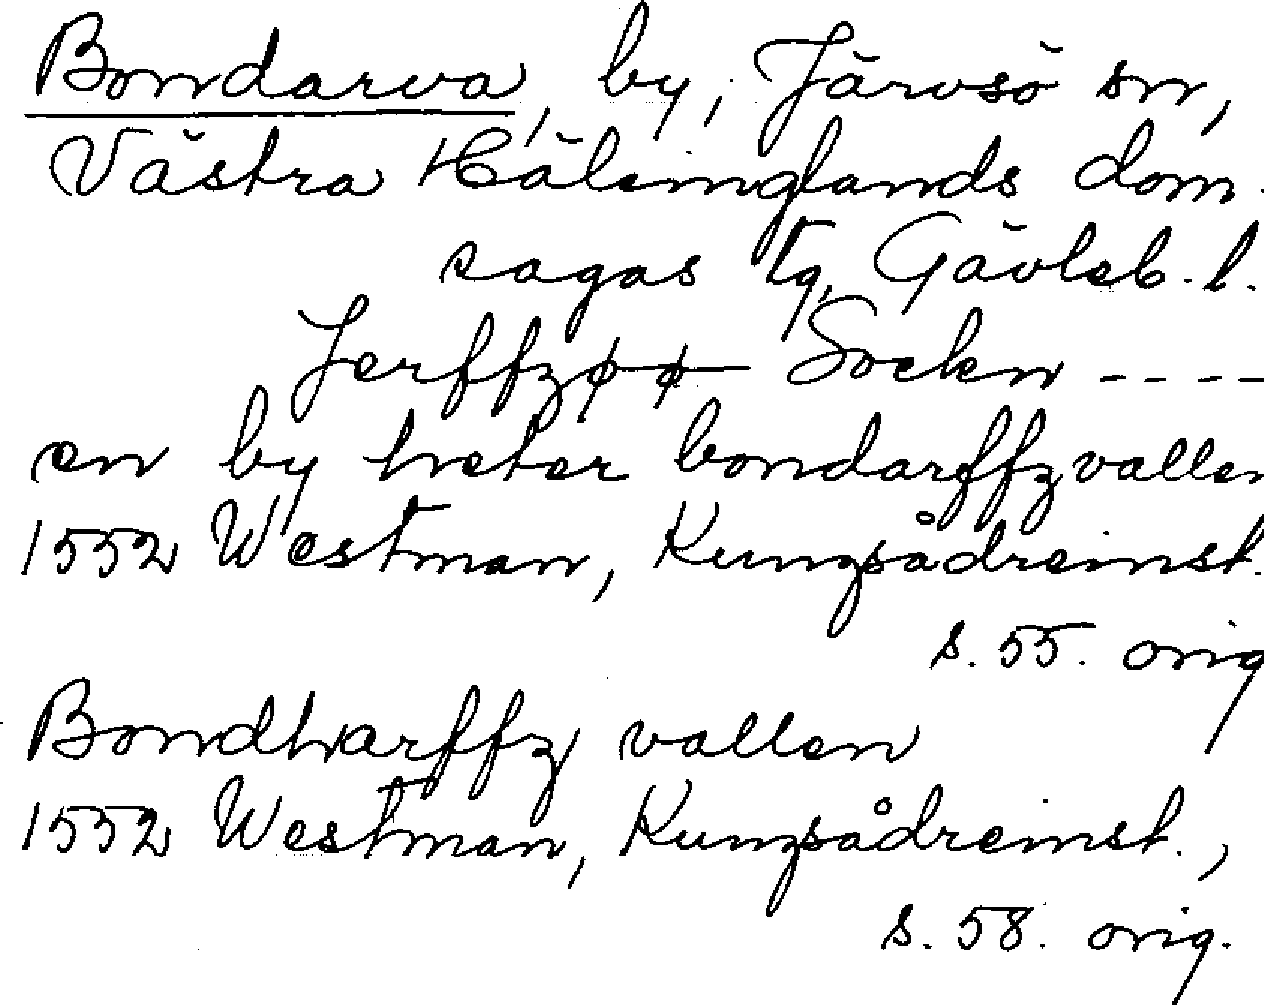 Bondarva, by, Järvsö sn,
Västra Hälsinglands dom-
sagas tg, Gävleb. l.
Jerffzøø Sockn ----
en by heter bondarffzvallen
1552 Westman, Kungsådreinst.
s. 55. orig
Bondharffz vallen
1552 Westman, Kungsådreinst.,
s. 58. orig.